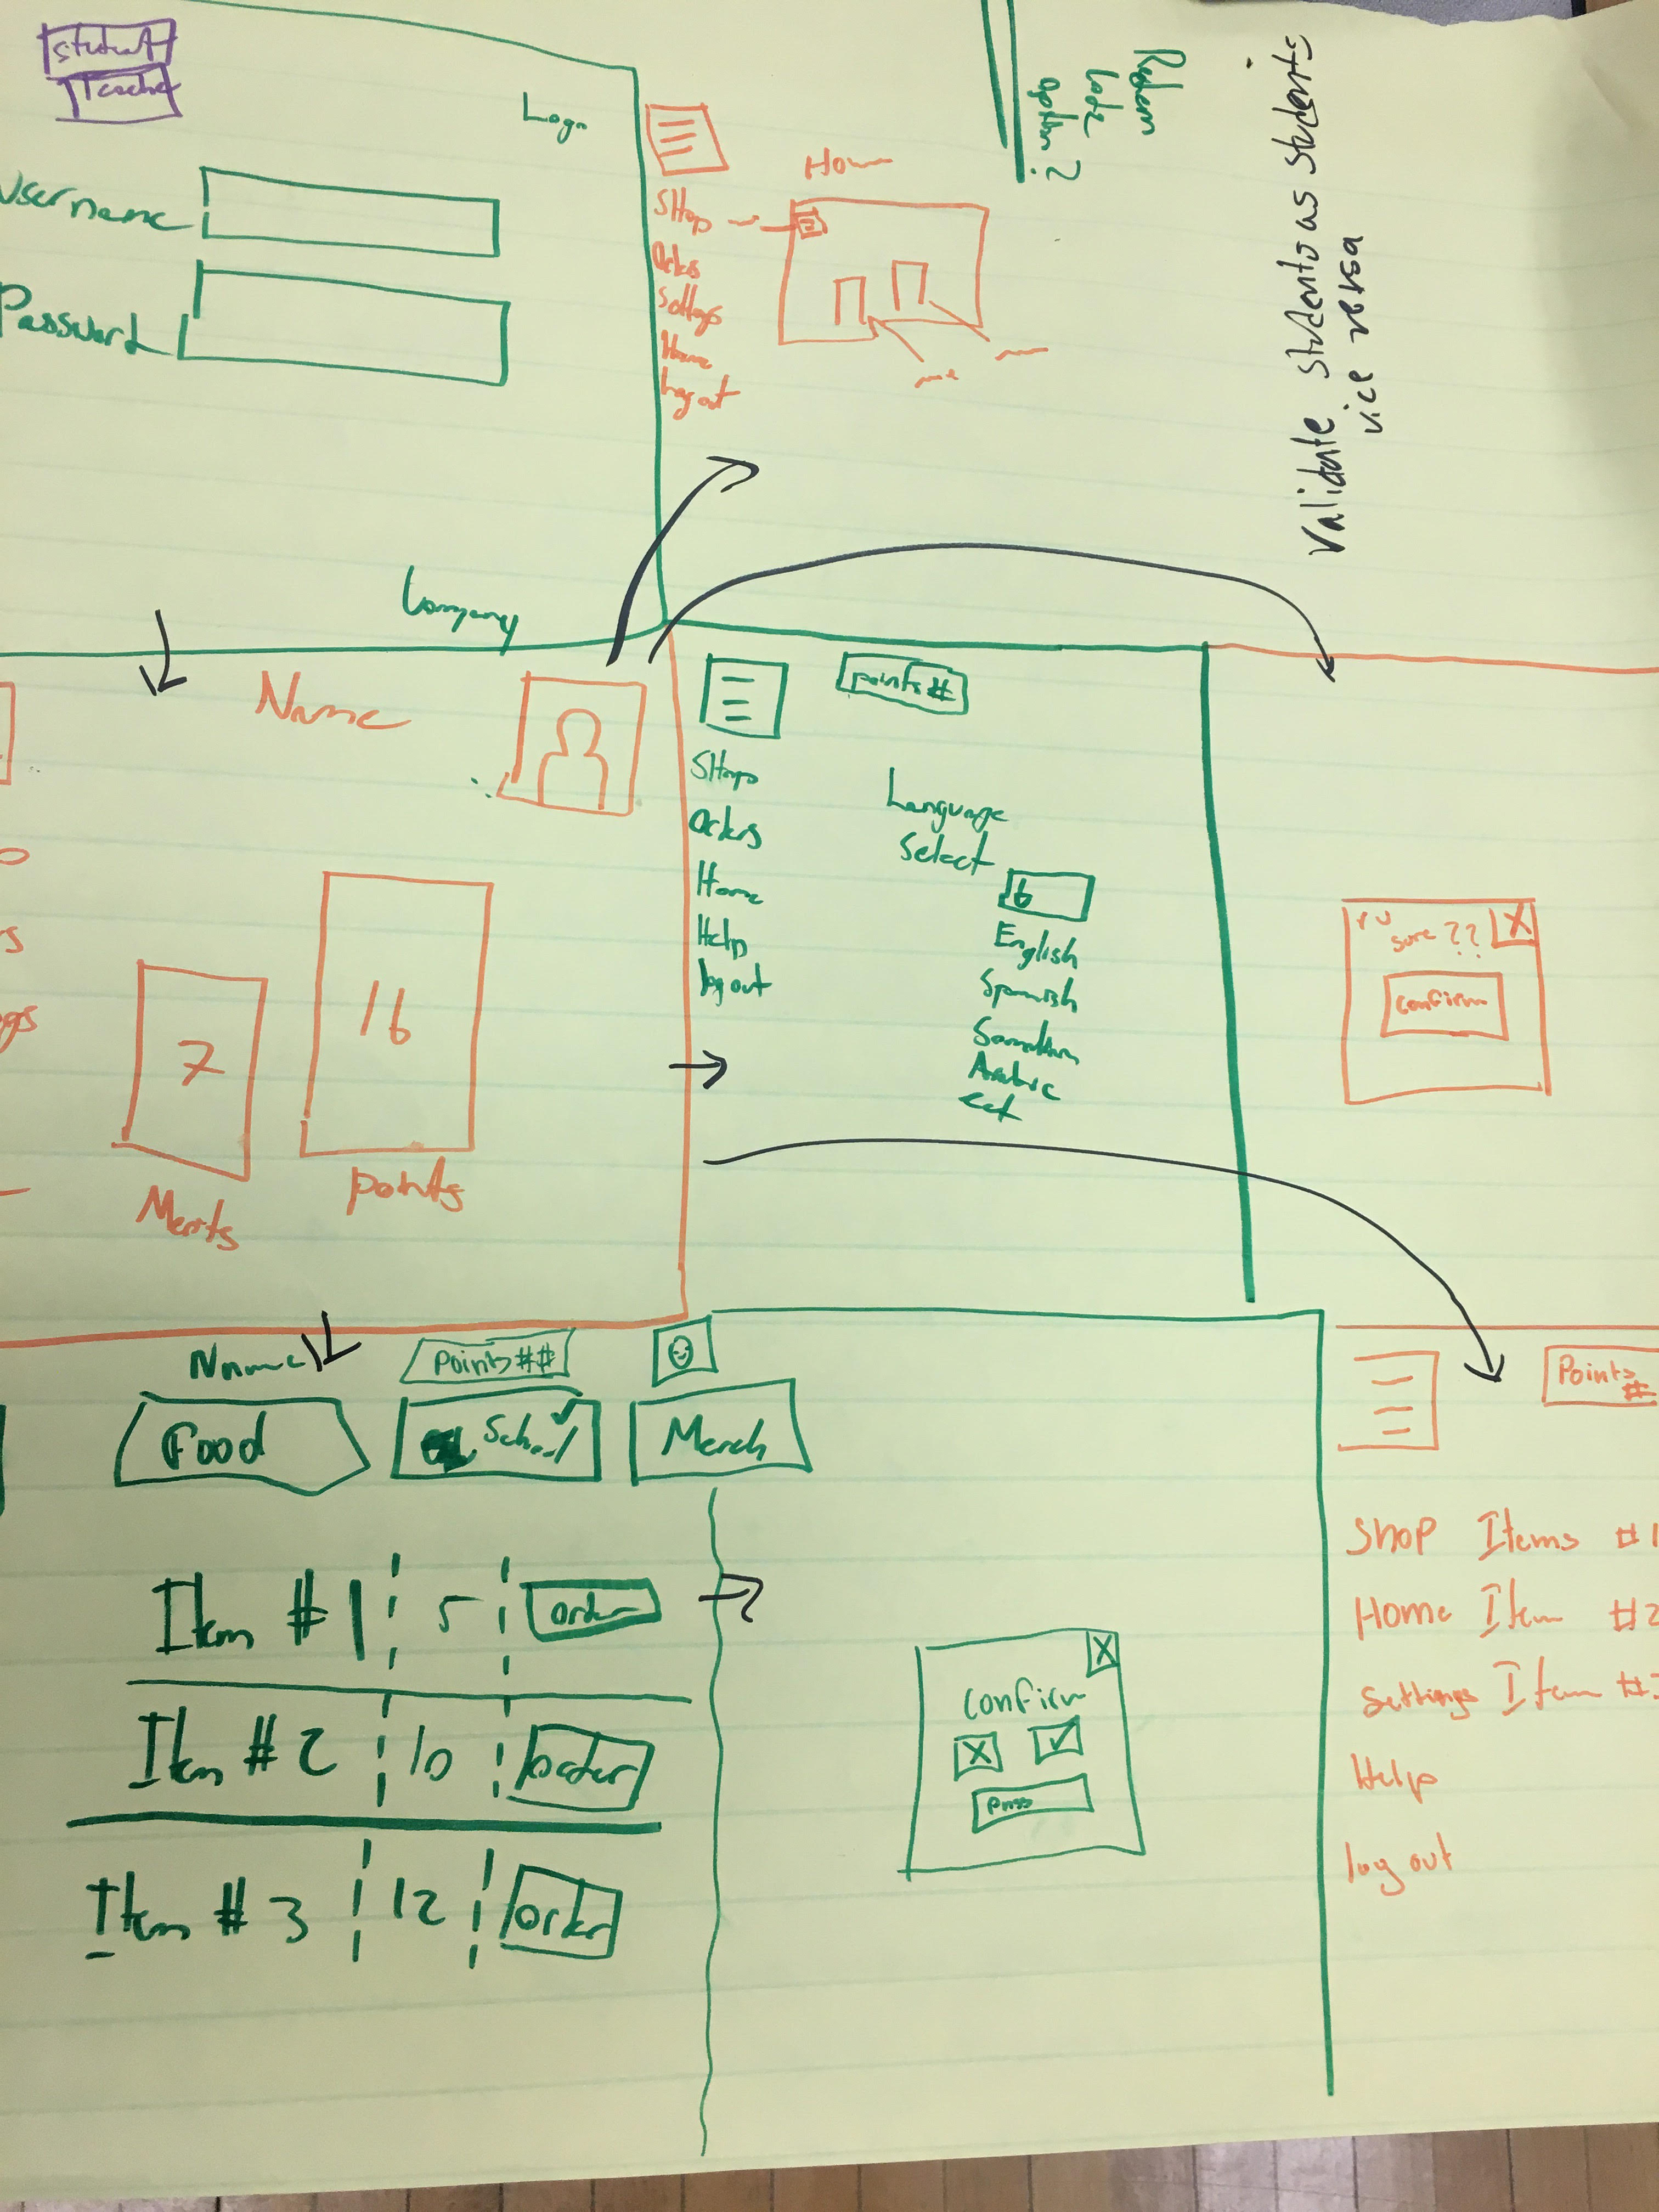 Student
Teacher
Login
Username
Password
Company
Shop
Orders
Settings
Home
Log out
Redeem
code
option?
Validate students as students
vice versa
Name
7
16
Merits
points
points #
Shop
Orders
Home
Help
log out
Language
Select
English
Spanish
Arabic
ect
r u
sure ??
X
confirm
Name
Points ##
Food
School
Merch
Item #1 5 order
Item #2 10 order
Item #3 12 order
X
confirm
X
pass
Points
#
Shop Items #1
Home Item #2
Settings Item #3
Help
log out